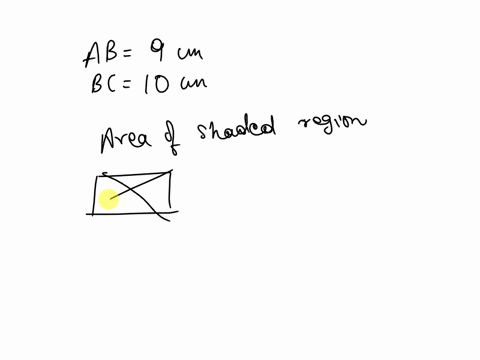 AB = 9 cm
BC = 10 cm
Area of shaded region